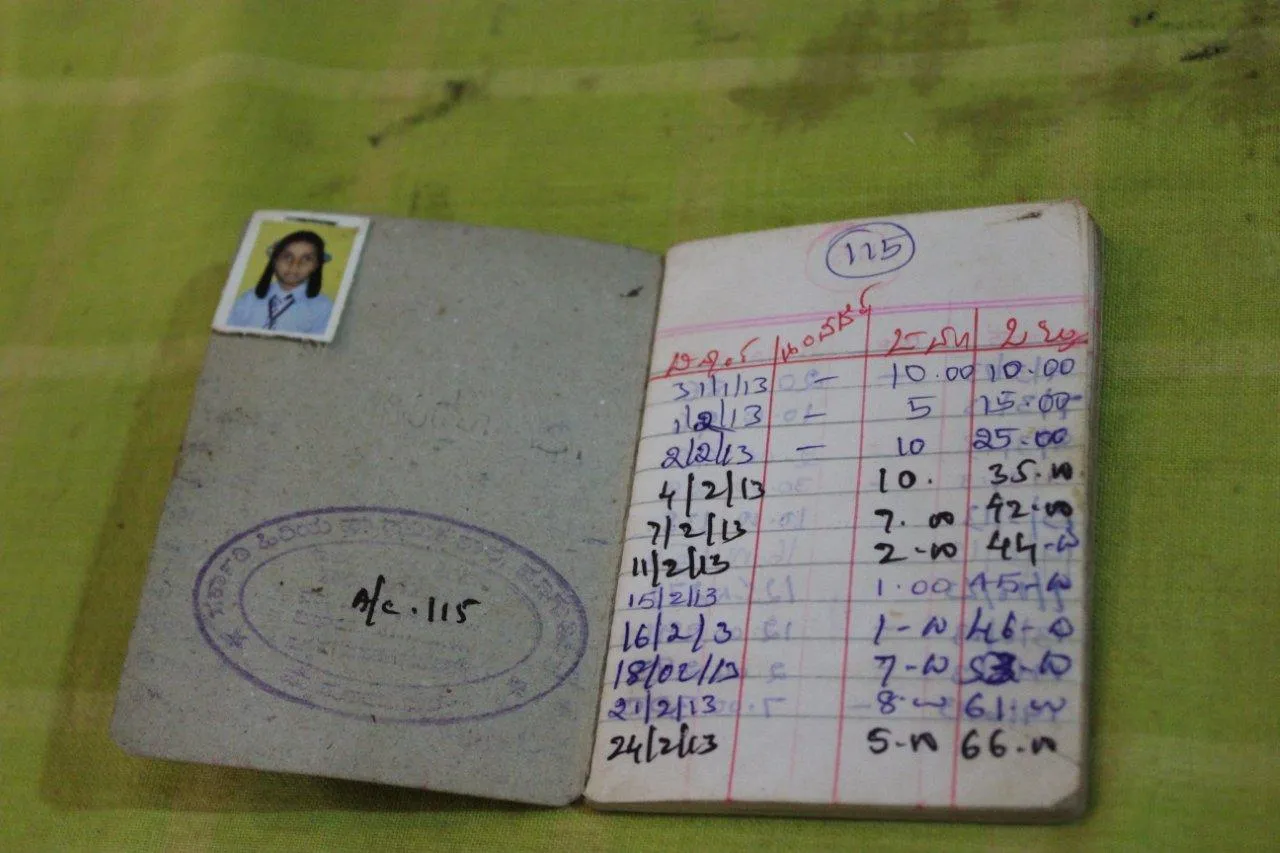 ಸರ್ಕಾರಿ ಹಿರಿಯ
A/c. 115
115
31/1/13 - 10.00 10.00
1/2/13 - 5 15.00
2/2/13 - 10 25.00
4/2/13 10. 35.00
7/2/13 7.00 42.00
11/2/13 2-00 44-00
15/2/13 1.00 45-00
16/2/3 1-00 46-00
18/02/13 7-00 53-00
21/2/13 8-00 61-00
24/2/13 5-00 66-00